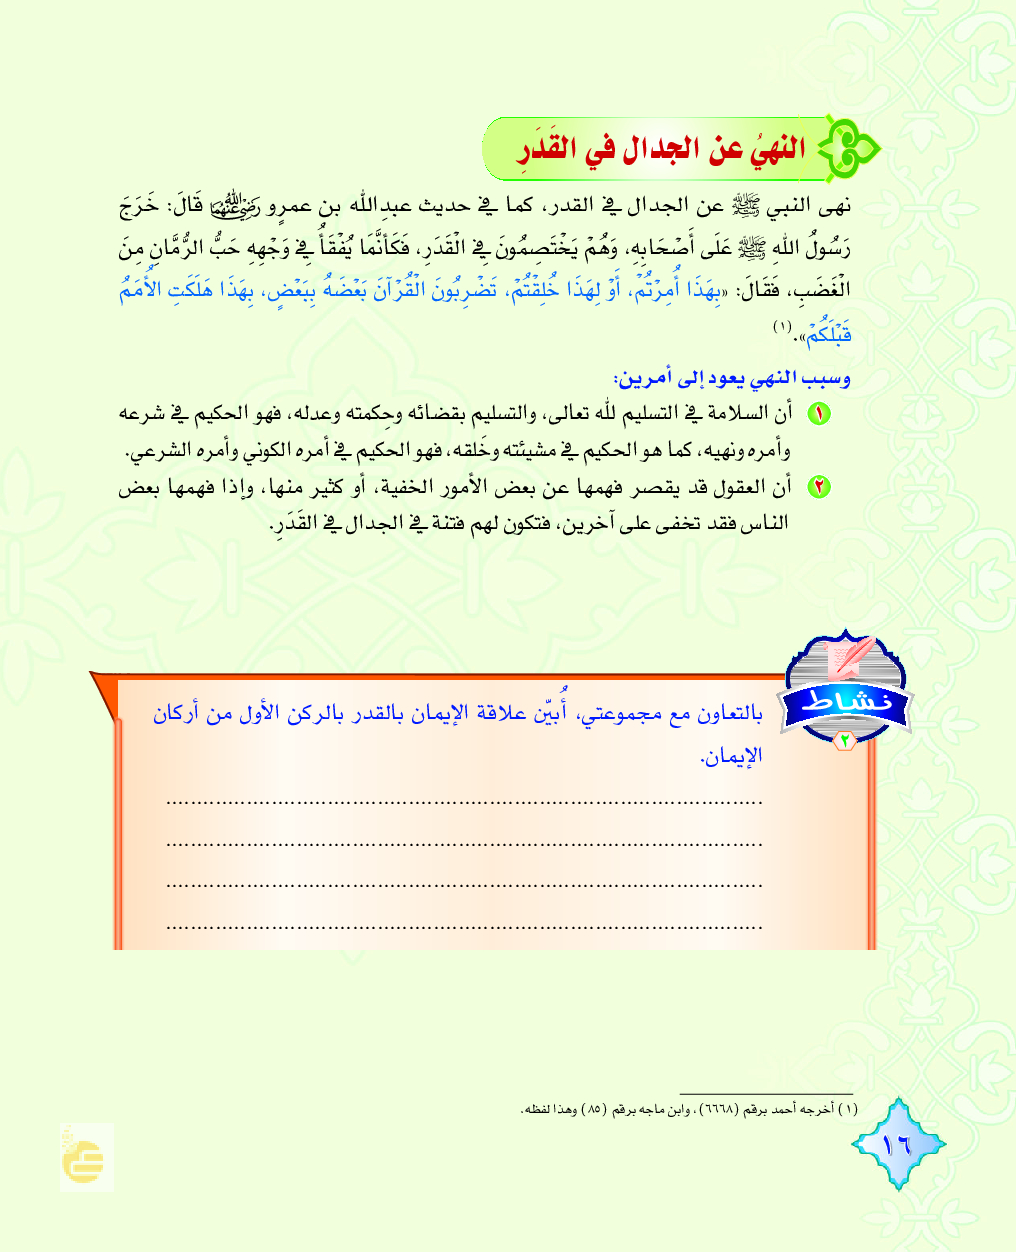 النهيُ عن الجدال في القَدَرِ
نهى النبي ﷺ عن الجدال في القدر، كما في حديث عبدِالله بن عمرٍو رَضِيَ اللهُ عَنْهُمَا قَالَ: خَرَجَ
رَسُولُ اللهِ ﷺ عَلَى أَصْحَابِهِ، وَهُمْ يَخْتَصِمُونَ فِي الْقَدَرِ، فَكَأَنَّمَا يُفْقَأُ فِي وَجْهِهِ حَبُّ الرُّمَّانِ مِنَ
الْغَضَبِ، فَقَالَ: «بِهَذَا أُمِرْتُمْ، أَوْ لِهَذَا خُلِقْتُمْ، تَضْرِبُونَ الْقُرْآنَ بَعْضَهُ بِبَعْضٍ، بِهَذَا هَلَكَتِ الأُمَمُ
قَبْلَكُمْ».(١)
وسبب النهي يعود إلى أمرين:
١ أن السلامة في التسليم لله تعالى، والتسليم بقضائه وحِكمته وعدله، فهو الحكيم في شرعه
وأمره ونهيه، كما هو الحكيم في مشيئته وخَلقه، فهو الحكيم في أمره الكوني وأمره الشرعي.
٢ أن العقول قد يقصر فهمها عن بعض الأمور الخفية، أو كثير منها، وإذا فهمها بعض
الناس فقد تخفى على آخرين، فتكون لهم فتنة في الجدال في القَدَرِ.
نشاط
٢
بالتعاون مع مجموعتي، أُبيّن علاقة الإيمان بالقدر بالركن الأول من أركان
الإيمان.
(١) أخرجه أحمد برقم (٦٦٦٨)، وابن ماجه برقم (٨٥) وهذا لفظه.
١٦